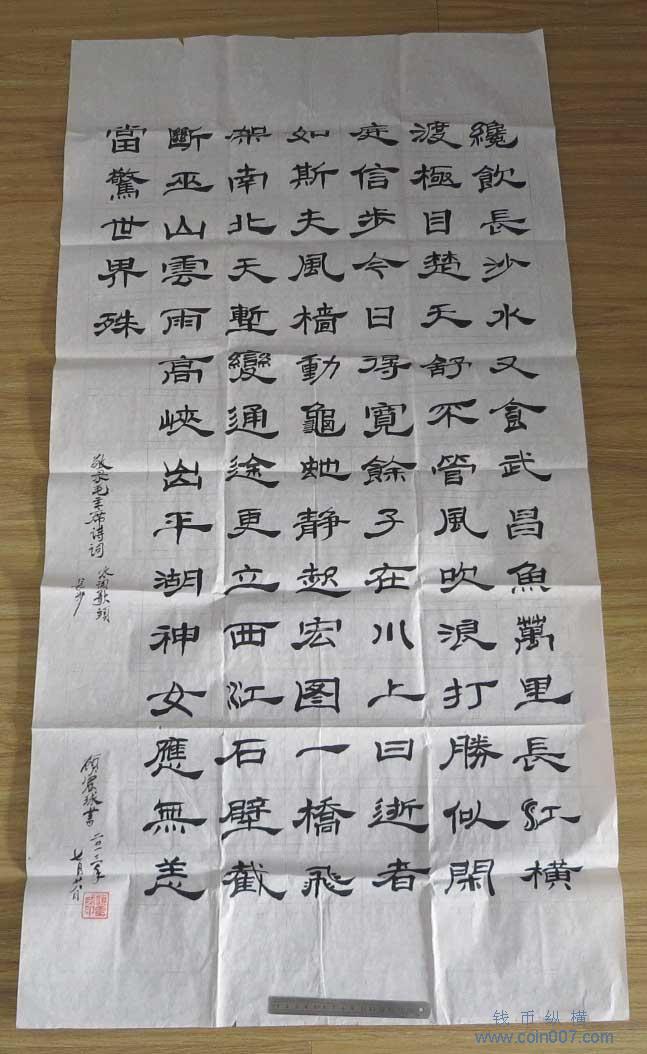 纔飲長沙水又食武昌魚萬里長江橫
渡極目楚天舒不管風吹浪打勝似閑
庭信步今日得寬餘子在川上曰逝者
如斯夫風檣動龜蛇静起宏图一橋飛
架南北天塹變通途更立西江石壁截
斷巫山雲雨高峽出平湖神女應無恙
當驚世界殊
敬录毛主席诗词 水调歌頭
长沙
球書
七月
钱币纵横
www.coin007.com